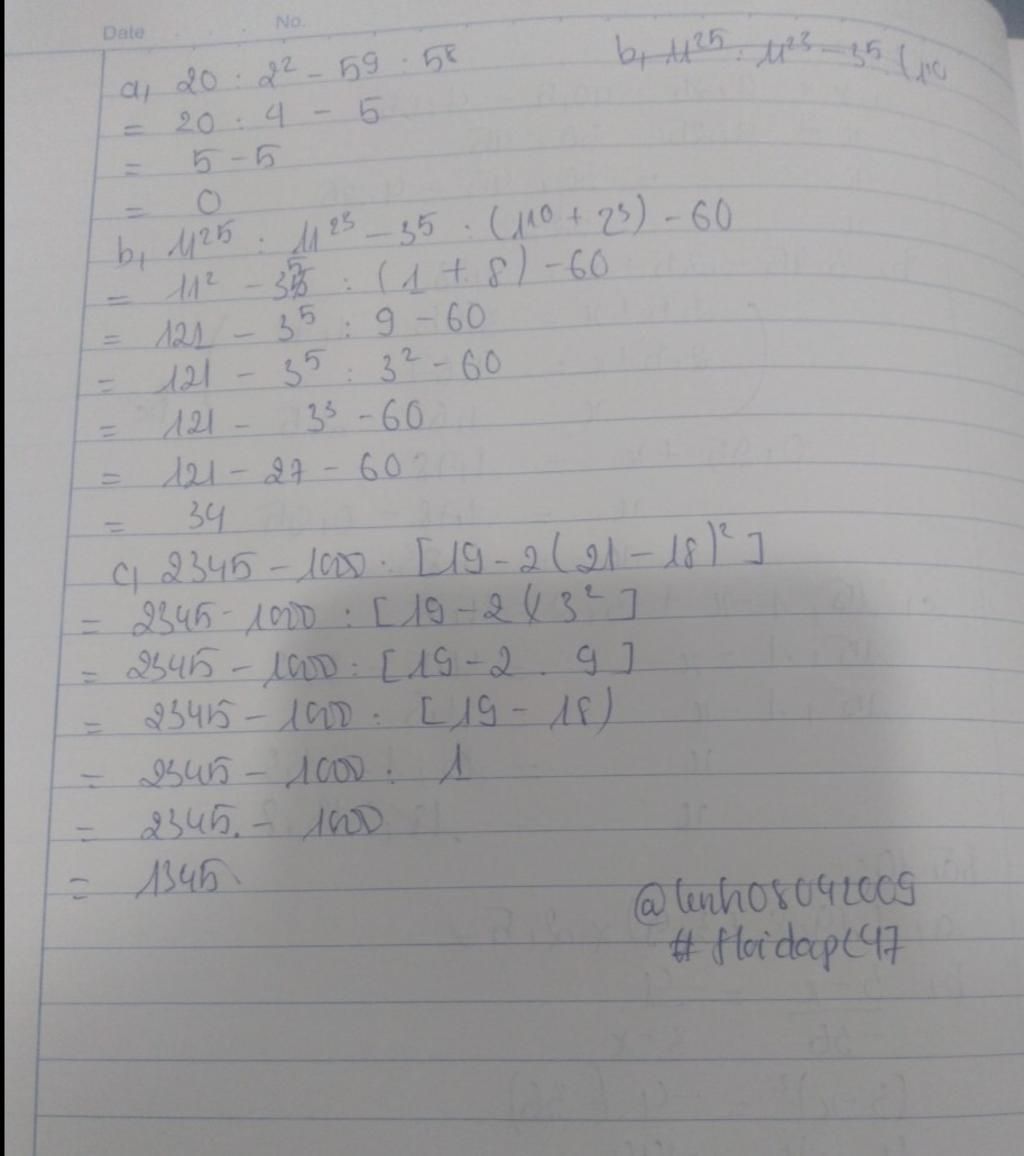 Date No.
a, 20 : 2² - 5⁹ : 5⁸
b, 11²⁵ : 11²³ - 3⁵ : (1¹⁰
= 20 : 4 - 5
= 5 - 5
= 0
b, 11²⁵ : 11²³ - 3⁵ : (1¹⁰ + 2³) - 60
= 11² - 3⁵ : (1 + 8) - 60
= 121 - 3⁵ : 9 - 60
= 121 - 3⁵ : 3² - 60
= 121 - 3³ - 60
= 121 - 27 - 60
= 34
c, 2345 - 1000 : [19 - 2(21 - 18)²]
= 2345 - 1000 : [19 - 2 . 3²]
= 2345 - 1000 : [19 - 2 . 9]
= 2345 - 1000 : [19 - 18)
= 2345 - 1000 : 1
= 2345. - 1000
= 1345